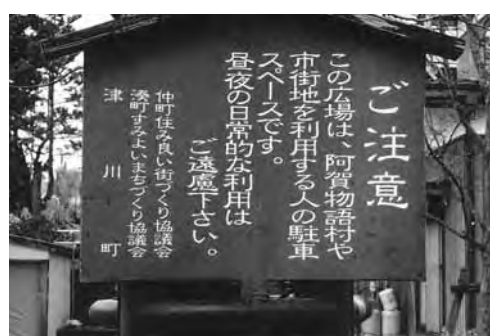 ご注意
この広場は、阿賀物語村や
市街地を利用する人の駐車
スペースです。
昼夜の日常的な利用は
ご遠慮下さい。
仲町住み良い街づくり協議会
湊町すみよいまちづくり協議会
津川町